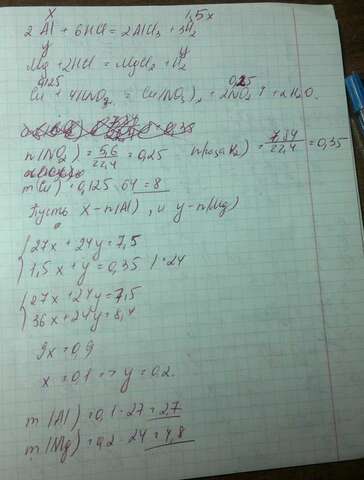 x 1,5x
2Al + 6HCl = 2AlCl₃ + 3H₂
y y
Mg + 2HCl = MgCl₂ + H₂
0,125 0,25
Cu + 4HNO₃ = Cu(NO₃)₂ + 2NO₂↑ + 2H₂O.
= 0,35
n(NO₂) = 5,6/22,4 = 0,25 n(газа H₂) = 7,84/22,4 = 0,35
m(Cu) = 0,125 · 64 = 8
Пусть x - n(Al), и y - n(Mg)
{27x + 24y = 7,5
{1,5x + y = 0,35 | · 24
{27x + 24y = 7,5
{36x + 24y = 8,4
9x = 0,9
x = 0,1 => y = 0,2.
m(Al) = 0,1 · 27 = 27
m(Mg) = 0,2 · 24 = 4,8